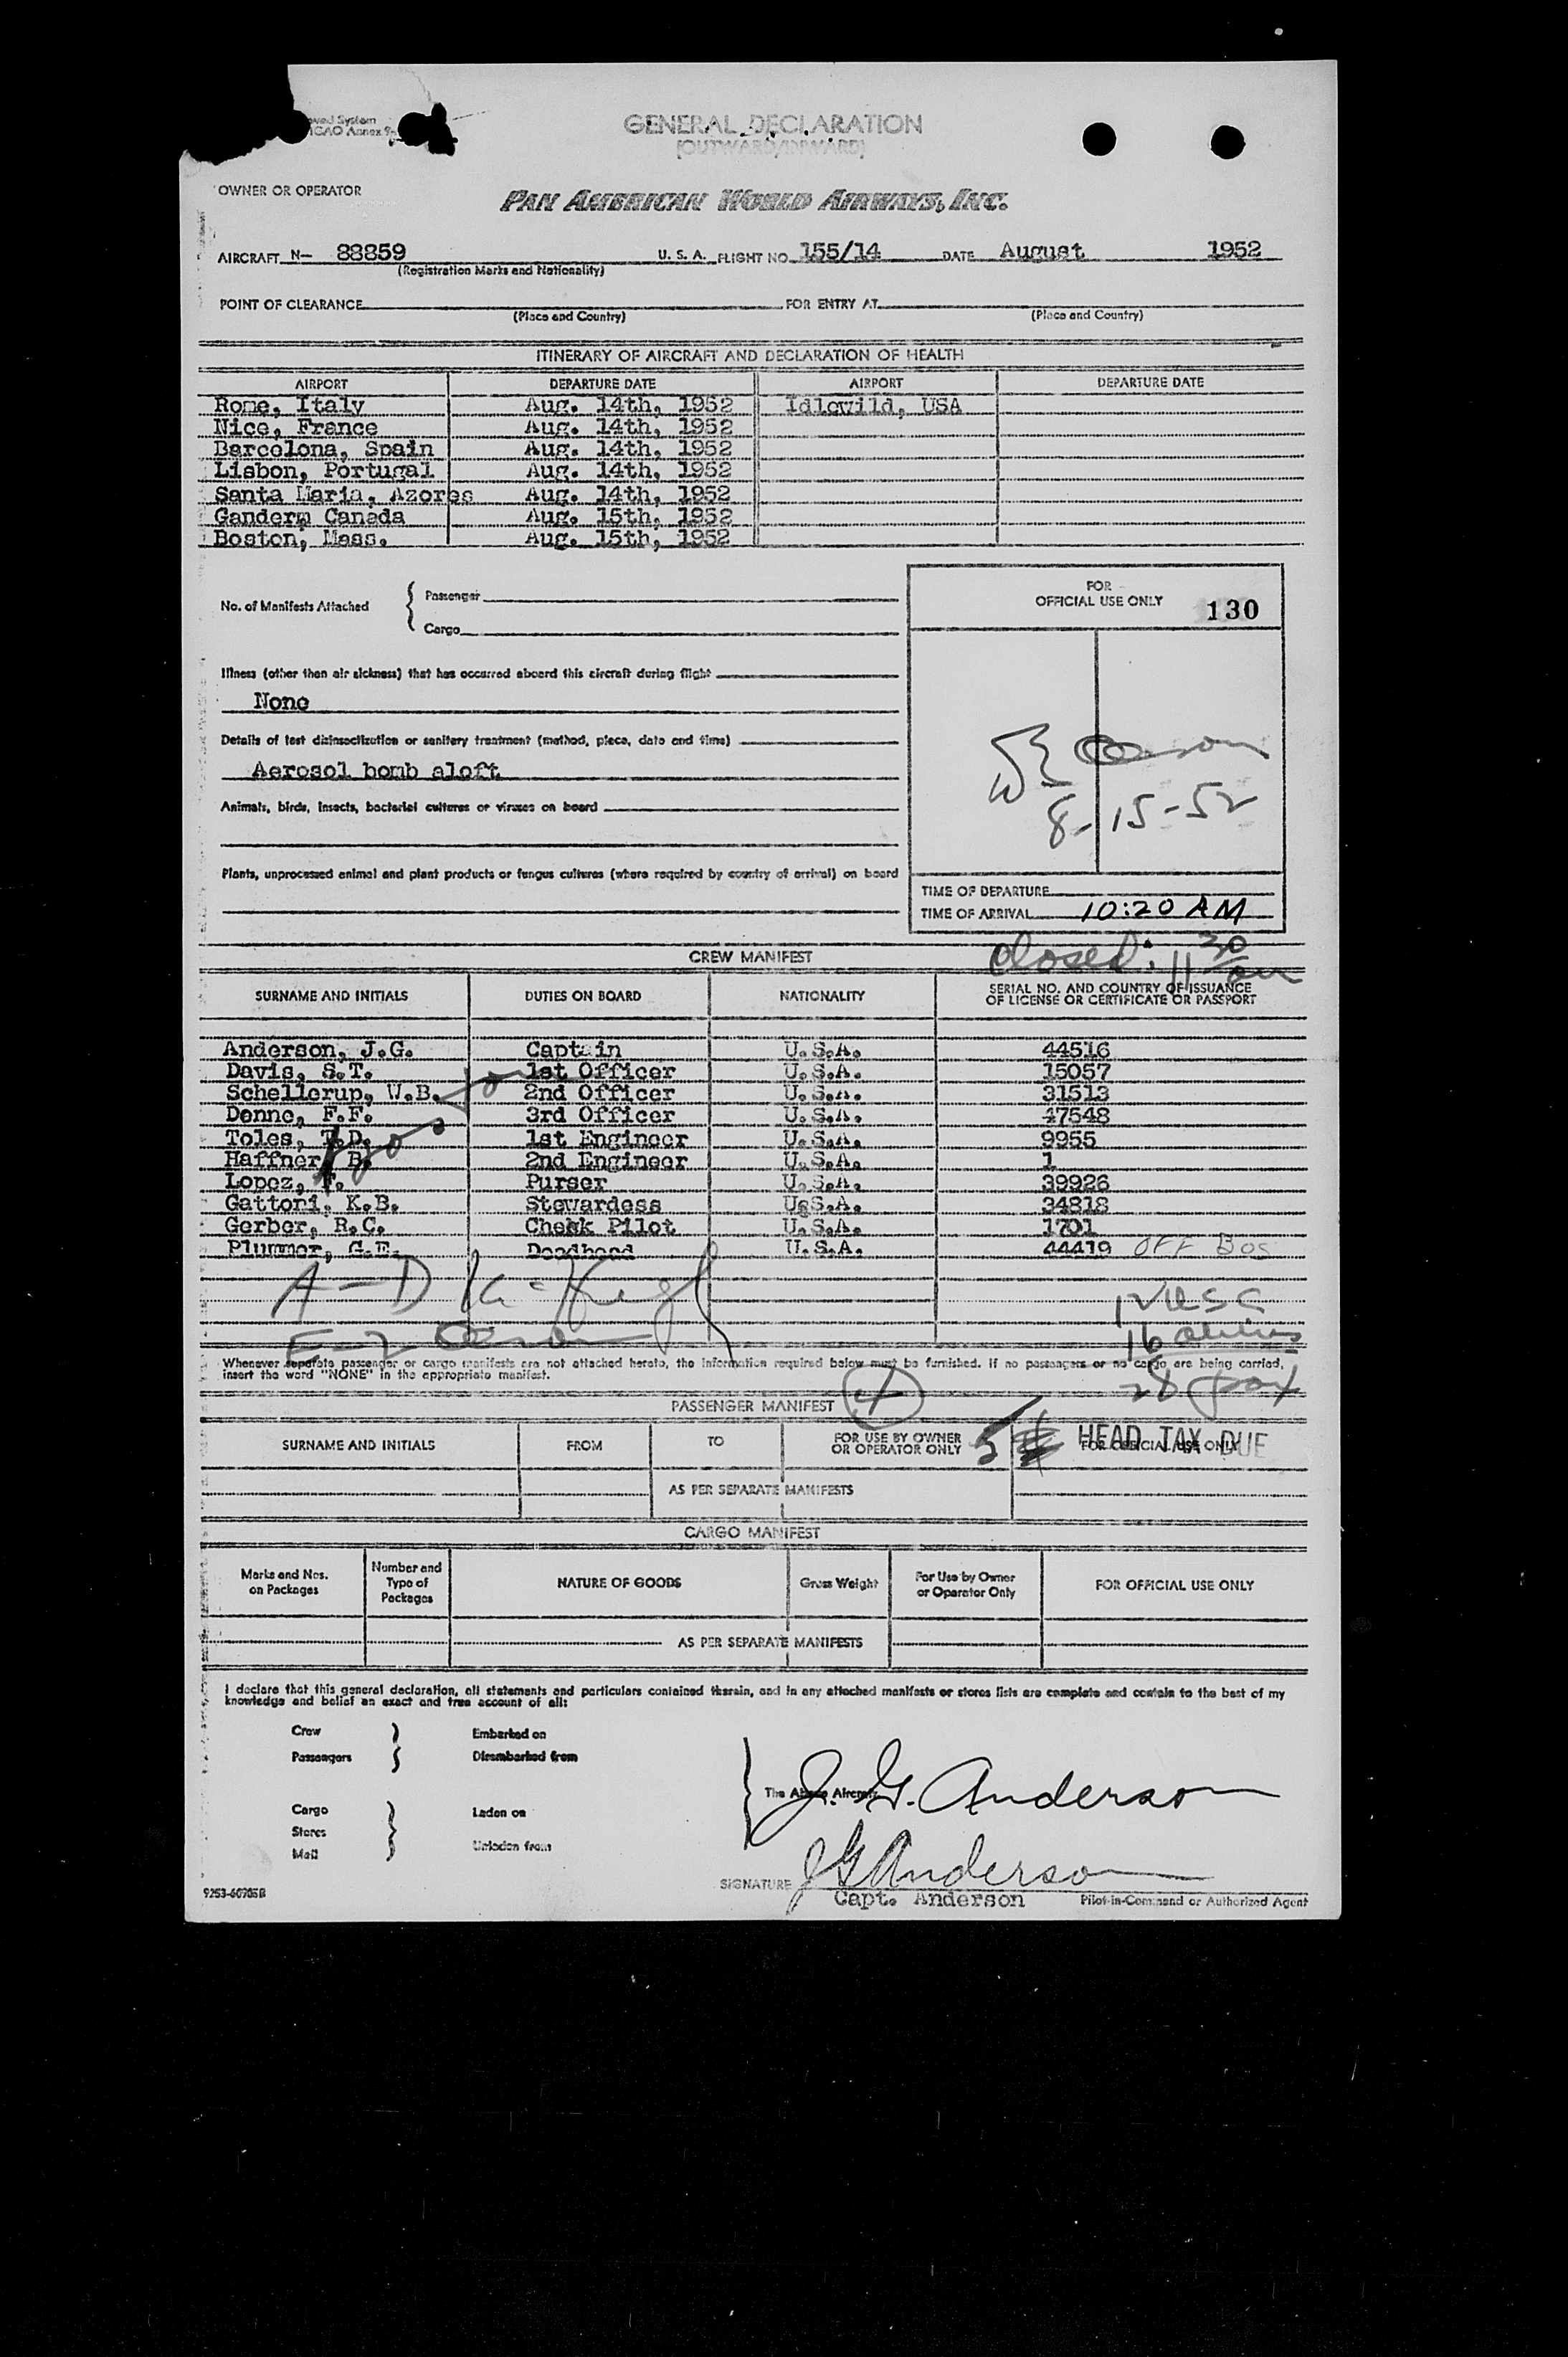 owed System
ICAO Annex 9
GENERAL DECLARATION
(OUTWARD/INWARD)
OWNER OR OPERATOR
PAN AMERICAN WORLD AIRWAYS, INC.
AIRCRAFT N- 88859 U. S. A. FLIGHT NO. 155/14 DATE August 1952
(Registration Marks and Nationality)
POINT OF CLEARANCE FOR ENTRY AT
(Place and Country) (Place and Country)
ITINERARY OF AIRCRAFT AND DECLARATION OF HEALTH
AIRPORT DEPARTURE DATE AIRPORT DEPARTURE DATE
Rome, Italy Aug. 14th, 1952 Idlewild, USA
Nice, France Aug. 14th, 1952
Barcelona, Spain Aug. 14th, 1952
Lisbon, Portugal Aug. 14th, 1952
Santa Maria, Azores Aug. 14th, 1952
Ganderm Canada Aug. 15th, 1952
Boston, Mass. Aug. 15th, 1952
FOR
OFFICIAL USE ONLY 130
No. of Manifests Attached
Passenger
Cargo
Illness (other than air sickness) that has occurred aboard this aircraft during flight
None
Details of last disinsectization or sanitary treatment (method, place, date and time)
Aerosol bomb aloft
Animals, birds, insects, bacterial cultures or viruses on board
8-15-52
Plants, unprocessed animal and plant products or fungus cultures (where required by country of arrival) on board
TIME OF DEPARTURE
TIME OF ARRIVAL 10:20 AM
Closed: 11 30
CREW MANIFEST
SURNAME AND INITIALS DUTIES ON BOARD NATIONALITY SERIAL NO. AND COUNTRY OF ISSUANCE
OF LICENSE OR CERTIFICATE OR PASSPORT
Anderson, J.G. Captain U.S.A. 44516
Davis, S.T. 1st Officer U.S.A. 15057
Schellerup, W.B. 2nd Officer U.S.A. 31513
Denne, F.F. 3rd Officer U.S.A. 47548
Toles, T.D. 1st Engineer U.S.A. 9955
Haffner, B. 2nd Engineer U.S.A. 1
Lopez, F. Purser U.S.A. 39926
Gattori, K.B. Stewardess U.S.A. 34818
Gerber, R.C. Check Pilot U.S.A. 1701
Plummer, G.E. Deadhead U.S.A. 44419 OFF BOS
A-D
E-Z
12 USC
16 aliens
28 pax
Whenever separate passenger or cargo manifests are not attached hereto, the information required below must be furnished. If no passengers or no cargo are being carried,
insert the word "NONE" in the appropriate manifest.
PASSENGER MANIFEST
SURNAME AND INITIALS FROM TO FOR USE BY OWNER
OR OPERATOR ONLY FOR OFFICIAL USE ONLY
5 HEAD TAX DUE
AS PER SEPARATE MANIFESTS
CARGO MANIFEST
Marks and Nos.
on Packages
Number and
Type of
Packages
NATURE OF GOODS
Gross Weight
For Use by Owner
or Operator Only
FOR OFFICIAL USE ONLY
AS PER SEPARATE MANIFESTS
I declare that this general declaration, all statements and particulars contained therein, and in any attached manifests or stores lists are complete and contain to the best of my
knowledge and belief an exact and true account of all:
Crew Embarked on
Passengers Disembarked from
The Above Aircraft
J. G. Anderson
Cargo Laden on
Stores
Mail Unladen from
SIGNATURE J G Anderson
Capt. Anderson Pilot-in-Command or Authorized Agent